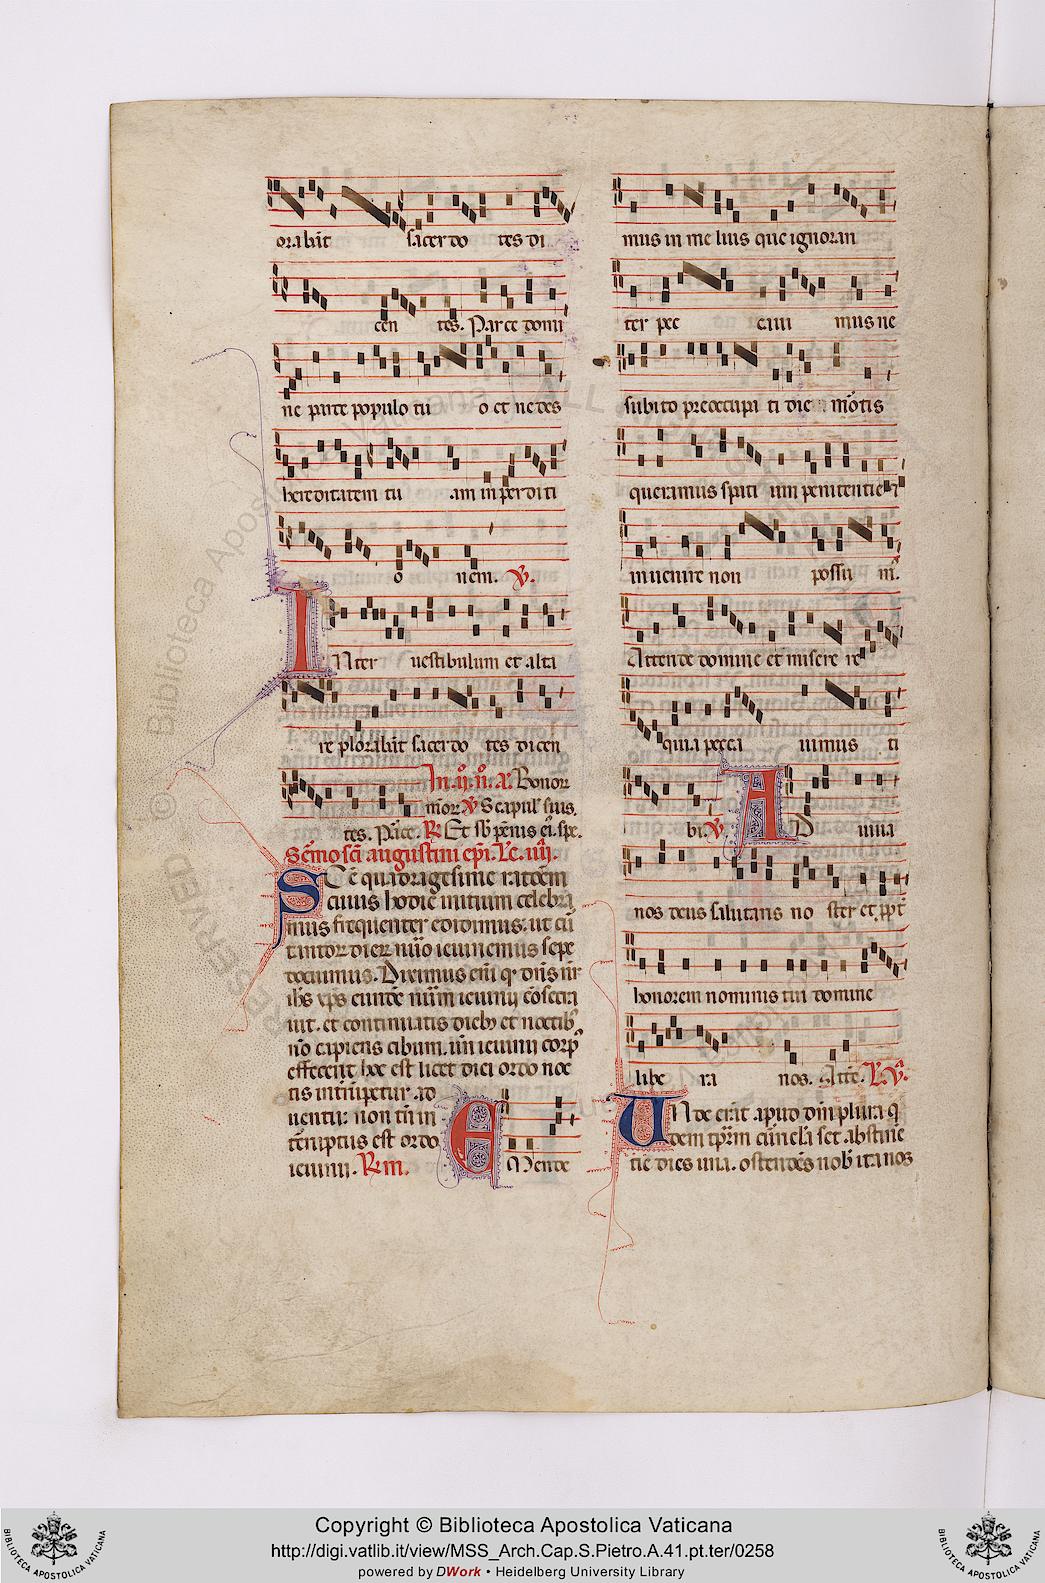 orabãt sacerdo tes di
cen tes. Parce domi
ne parce populo tu o et ne des
hereditatem tu am in perditi
o nem. ℣.
INter uestibulum et alta
re plorabãt sacerdo tes dicen
In .ij. nõ. añ. Bonor
mõr ℣ Scapul' suis.
tes. Parce. ℟ Et sb' pẽnis ei. spe.
Sermo sci augustini epi. Lc. iiij.
cuius hodie initium celebra
mus frequenter edidimus. ut cũ
docuimus. Diximus eni
ihs xps eunde
uit. et continuatis dieb; et noctib;
nõ capiens cibum.
effecerit hoc est licet dici ordo noc
uentu: non tm in
teruptus est ordo
ieiunii. ℟m.
EMende
mus in me lius que ignoran
ter pec caui mus ne
subito preoccupa ti die mõtis
queramus spati um penitentie et
inuenire non possu m'.
Attende domine et misere re
quia pecca uimus ti
bi. ℣. AD iuua
nos deus salutaris no ster et ppt
honorem nominis tui domine
libe ra nos. Attẽ. L. v.
UNde erit apud
tie dies una. ostendẽs nob' ita nos
Copyright © Biblioteca Apostolica Vaticana
http://digi.vatlib.it/view/MSS_Arch.Cap.S.Pietro.A.41.pt.ter/0258
powered by DWork • Heidelberg University Library
BIBLIOTECA APOSTOLICA VATICANA
BIBLIOTECA APOSTOLICA VATICANA